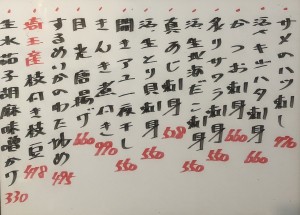 サメのハツ刺し 770
活〆キハタ刺身
かつお刺身 660
炙りサワラ刺身 660
活〆生地海だこ刺身 550
真あじ刺身 550
活〆生とり貝刺身 528
開きアユ一夜干し 550
きんき煮 990
目光唐揚げ 660
するめいかのわた炒め 495
埼玉産枝付き枝豆 478
生水茄子胡麻味噌かけ 330